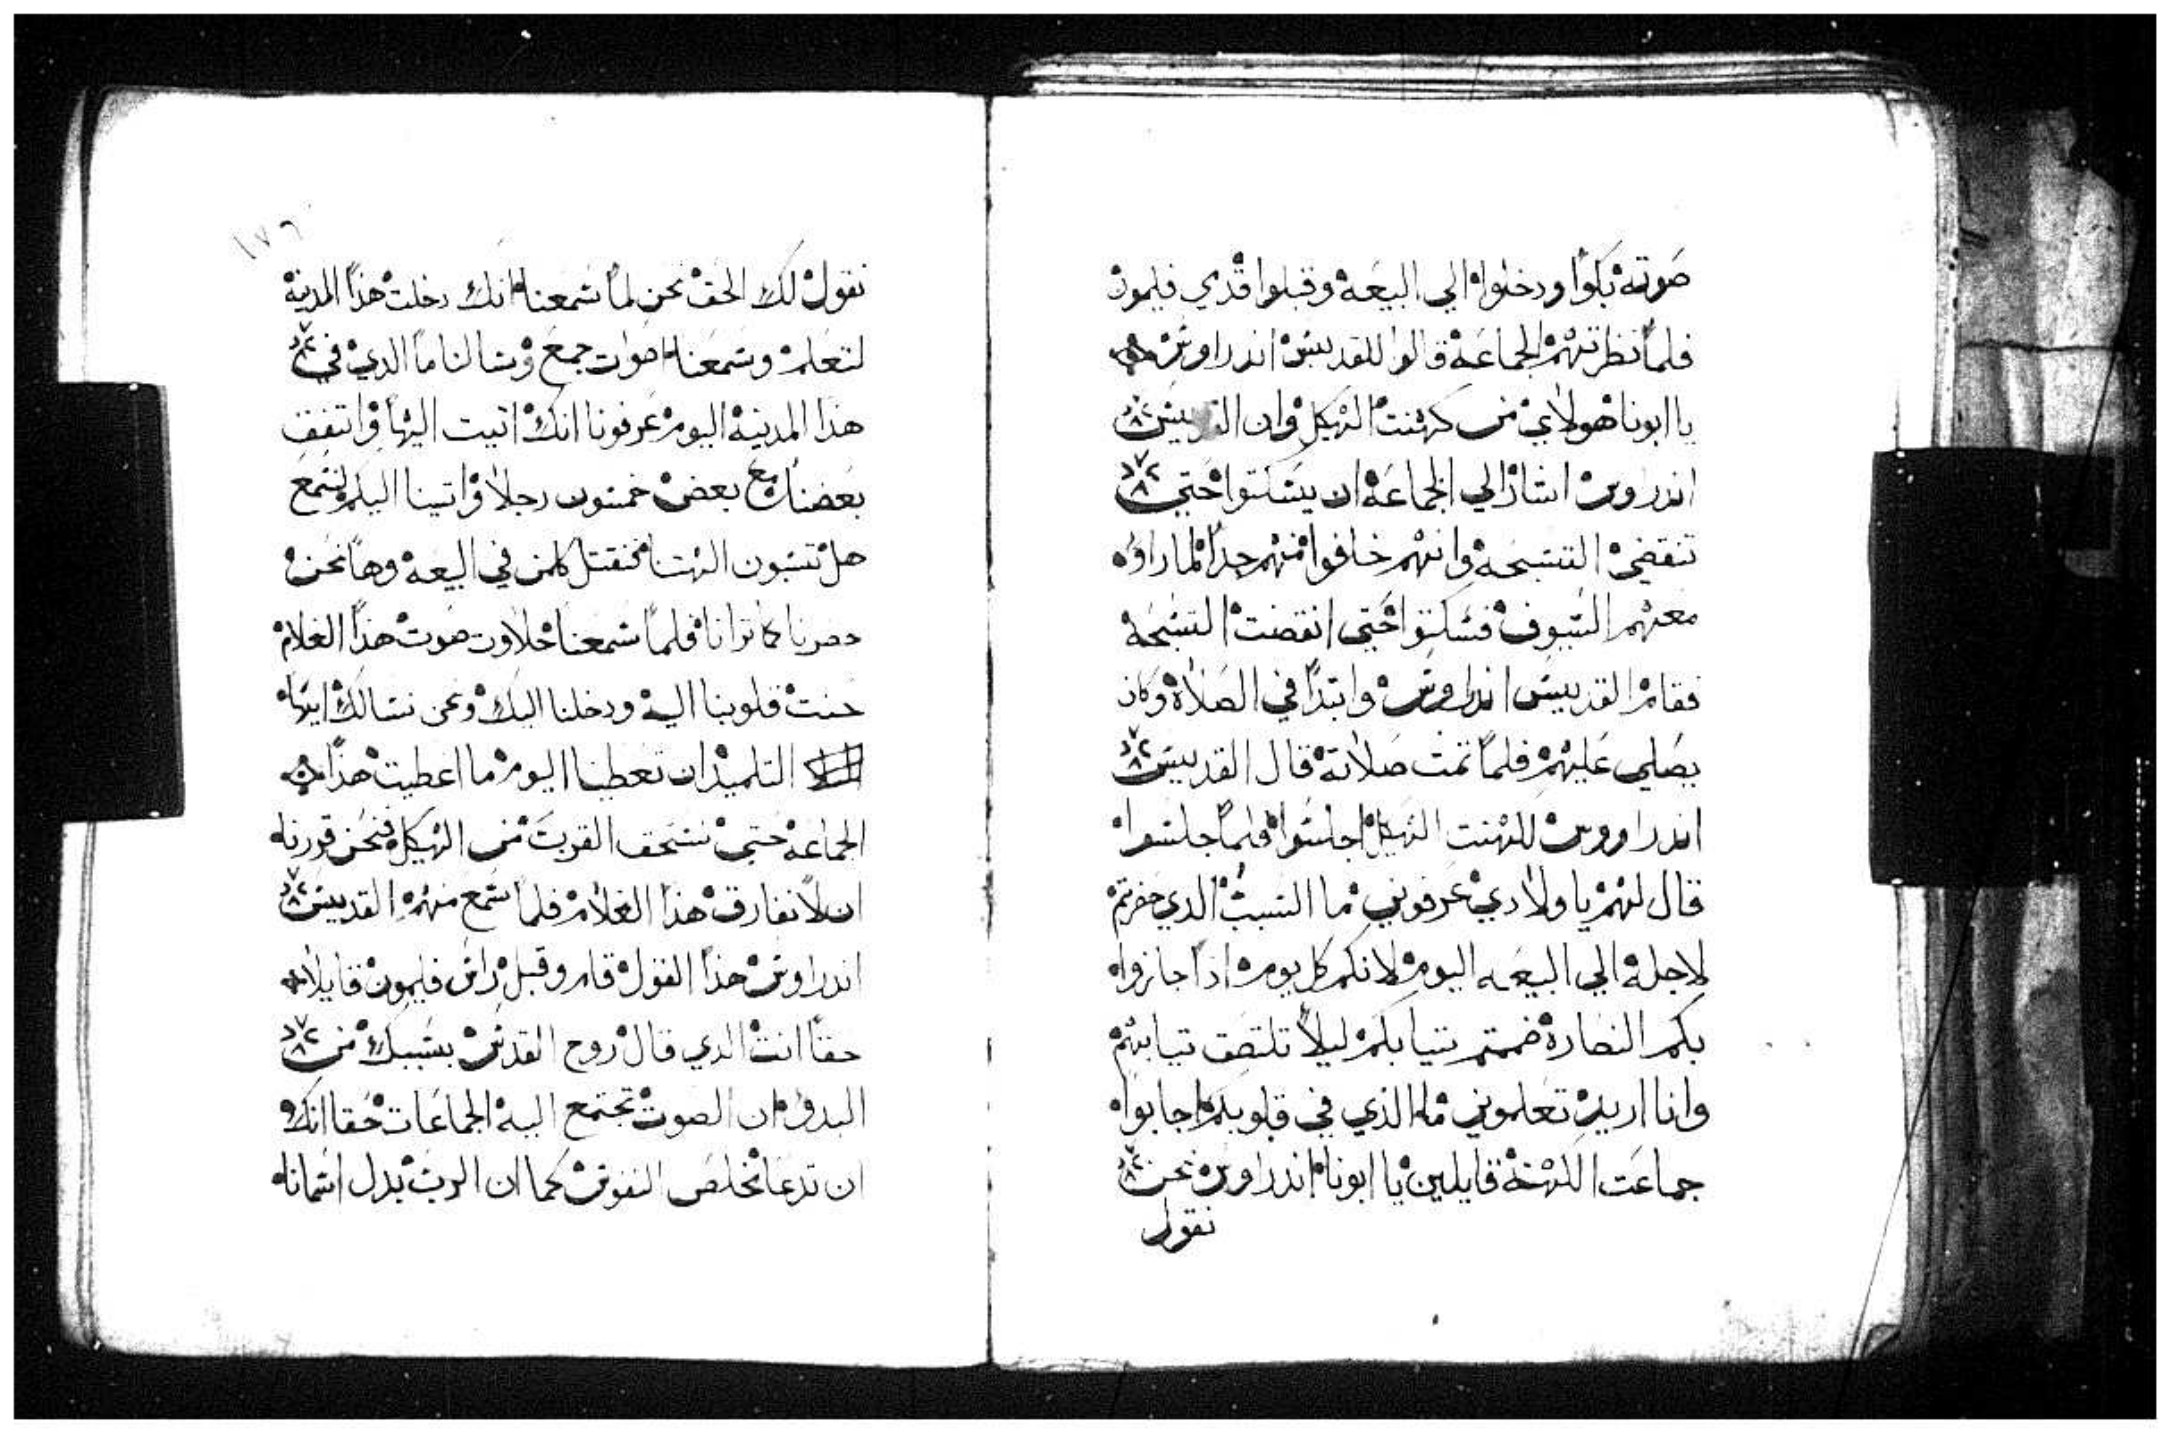 صوته بكوا ودخلوا الي البيعه وقبلوا قدي فليمون
فلما نظرتهم الجماعه قالوا للقديس اندراوس
يا ابونا هولاي من كهنت الهيكل وان القديس
اندراوس اشار الي الجماعه ان يسكتوا حتي
تنقضي التسبحه وانهم خافوا منهم جدا لما راوه
معهم السيوف فسكتوا حتي انقضت التسبحه
فقام القديس اندراوس وابتدا في الصلاه وكان
يصلي عليهم فلما تمت صلاته قال القديس
اندراووس للهنت الهيكل اجلسوا فلما جلسوا
قال لهم يا ولادي عرفوني ما السبب الدي حضرتم
لاجله الي البيعه اليوم لانكم كل يوم ادا جازوا
بكم النصاره ضميتم تيابكم ليلا تلتصق تيابهم
وانا اريد تعلموني ما الذي في قلوبكم اجابوا
جماعت اللهنه قايلين يا ابونا اندراوس نحن
نقول
١٧٦
نقول لك الحق نحن لما سمعنا انك دخلت هذا المدينه
لتعلم وسمعنا اصوات جمع وسالنا ما الدي في
هذا المدينه اليوم عرفونا انك اتيت اليها واتفق
بعضنا مع بعض خمسون رجلا واتينا اليكم لنسمع
هل تسبون الهتنا فنقتل كلمن في البيعه وها نحن
حضرنا كما ترانا فلما سمعنا حلاوت صوت هذا الغلام
حنت قلوبنا اليه ودخلنا اليك ونحن نسالك ايها
التلميد ان تعطينا اليوم ما اعطيت هذا
الجماعه حتي نستحق القربت من الهيكل فنحن قررنا
ان لا نفارق هذا الغلام فلما سمع منهم القديس
اندراوس هذا القول قام وقبل راس فليمون قايلا
حقا انت الدي قال روح القدس بسببك من
البدو ان الصوت تجتمع اليه الجماعات حقا انك
ان تدعا مخلص النفوس كما ان الرب بدل اسمانا